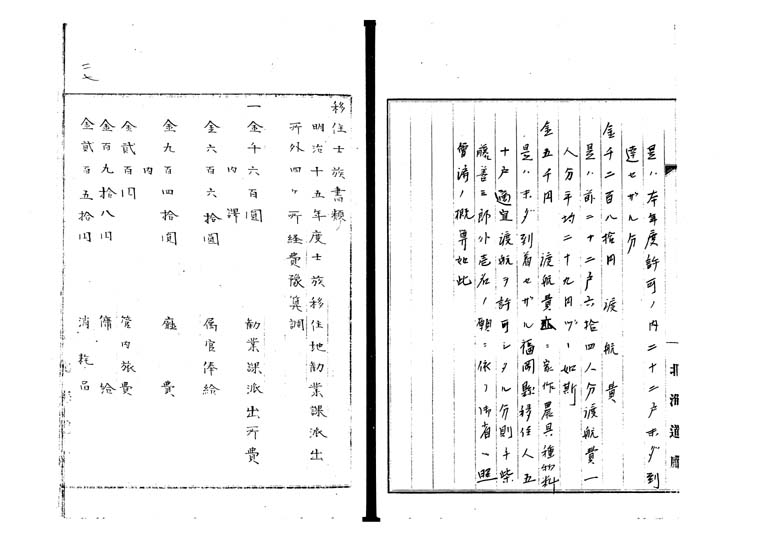 是ハ本年度許可ノ内二十二戸未ダ到
達セザル分
金千二百八拾円 渡航費
是ハ前二十二戸六拾四人分渡航費一
人分平均二十九円ヅヽ如斯
金五千円 渡航費並ニ家作農具種物料
是ハ未ダ到着セザル福岡縣移住人五
十戸適宜渡航ヲ許可シタル分則チ柴
藤善三郎外壱名ノ願ニ依ノ御省ヘ照
會済ノ概算如此
北海道廰
移住士族書類
明治十五年度士族移住地勧業課派出
所外四ヶ所経費豫算調
一金千六百圓 勧業課派出所費
内譯
金六百六拾圓 属官俸給
金九百四拾圓 廰費
内
金貳百円 管内旅費
金百九拾八円 傭給
金貳百五拾円 消耗品
二七